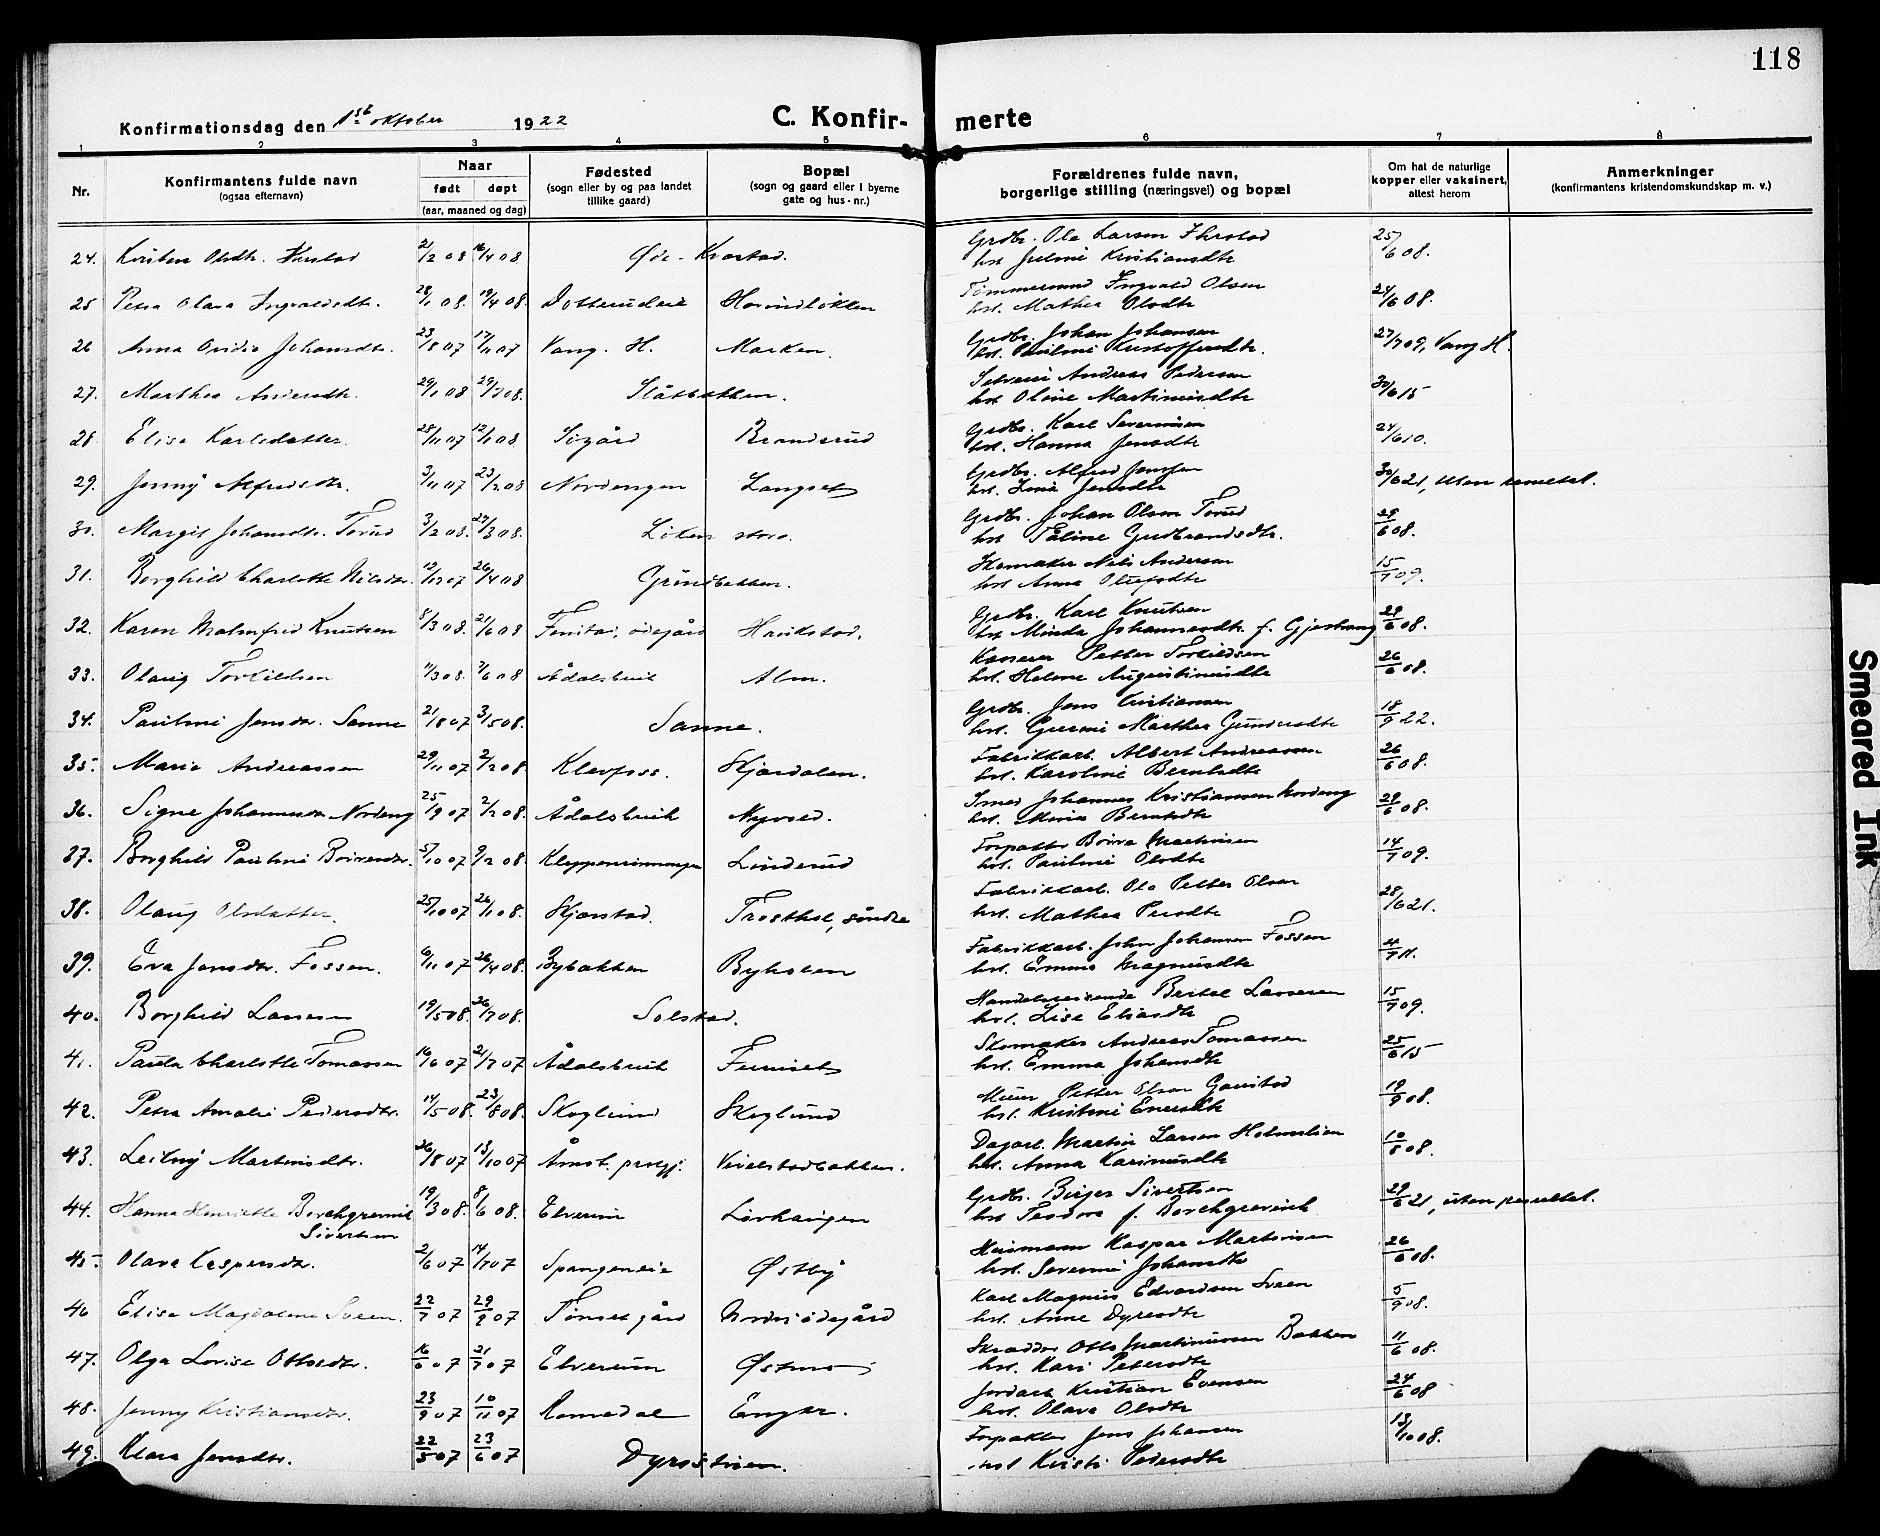 118
Konfirmationsdag den 1ste oktober 1922 C. Konfir- merte
1 2 3 4 5 6 7 8
Nr.
Konfirmantens fulde navn
(ogsaa efternavn)
Naar
født døpt
(aar, maaned og dag)
Fødested
(sogn eller by og paa landet
tillike gaard)
Bopæl
(sogn og gaard eller i byerne
gate og hus-nr.)
Forældrenes fulde navn,
borgerlige stilling (næringsvei) og bopæl
Om hat de naturlige
kopper eller vaksinert,
attest herom
Anmerkninger
(konfirmantens kristendomskundskap m. v.)
Grdbr. Ola Larsen
24. Olsdtr. 21/2 08 16/4 08 25/6 08.
hst. Kristiansdtr
Tømmermand Ingvald Olsen
25 Petra Olava Ingvaldsdtr. 28/1 08. 19/4 08 24/6 08.
hst. Mathea Olsdtr
Grdbr. Johan Johansen
26 Anna Ovidia Johansdtr. 23/8 07 17/11 07 Vang. H. Marken. 27/7 09, Vang H.
hst. Pauline Kristoffersdtr.
Andreas Pedersen
27. Marthea Andersdtr. 29/1 08 29/3 08. Slåtbakken. 30/6 15
hst. Oline Martinusdtr
Grdbr. Karl Severinsen
28. Elisa Karlsdatter. 28/11 07 12/1 08 Sigård Brandsrud 24/6 10.
hst. Hanna Jensdtr
Grdbr. Alfred Jensen
29. Jenny Alfredsdtr. 3/11 07 23/2 08 Nordengen Langset 30/6 21, uten resultat.
hst. Jensdtr
Grdbr. Johan Olsen Torud
30. Margit Johansdtr. Torud 3/2 08. 29/3 08. Løken store. 29/6 08.
hst. Gudbrandsdtr.
Skomaker Nils Andersen
31. Borghild Charlotte Nilsdtr. 12/12 07 26/4 08 Grundbakken. 15/7 09.
hst. Anna Olufsdtr
Grdbr. Karl Knutsen
32. Karen Malmfrid Knutsen 8/3 08. 21/6 08 29/6 08.
hst Minda Johannesdtr. f. Gjestvang
Kasserer Petter Torkildsen
33. Olaug Torkildsen 11/3 08. 7/6 08 Ådalsbruk Alm. 26/6 08.
hst. Helene Augustinusdtr
Grdbr. Jens Kristiansen
34. Pauline Jensdtr. Sanne 21/8 07 3/5 08. Sanne. 18/9 22.
hst. Marthea Gundersdtr
Fabrikkarb. Albert Andreassen
35. Marie Andreassen 29/11 07 2/2 08. Klevfoss. Skjærdalen. 26/6 08.
hst. Karoline Berntsdtr
Smed Johannes Kristiansen Nordeng
36. Signe Johannesdtr Nordeng 25/9 07 2/2 08. Ådalsbruk Nyvold. 29/6 08.
hst. Berntsdtr
Forpakter Børre Martinsen
37. Borghild Pauline Børresdtr. 5/10 07 9/2 08. Linderud 14/7 09.
hst. Pauline Olsdtr
Fabrikkarb. Ole Petter Olsen
38. Olaug Olsdatter. 25/10 07 26/1 08. Skjørstad. Frosthol, søndre 28/6 21.
hst. Mathea Persdtr
Fabrikkarb. John Johansen Fossen
39. Eva Jonsdtr. Fossen. 6/11 07 26/4 08. Bybakken Byholen 4/7 11.
hst. Emma Magnusdtr
Handelsreisende Bertel Larsen
40. Borghild Larsen 19/5 08. 26/7 08. Solstad. 15/7 09.
hst. Lise Eliasdtr
Skomaker Andreas Tomassen
41. Paula Charlotte Tomassen 16/6 07 21/7 07 Ådalsbruk Furuset 25/6 15
hst. Emma Johansdtr
Murer Petter Olsen Gaustad
42. Petra Amalie Pedersdtr. 14/5 08. 23/8 08. Skoglund Skoglund 19/9 08.
hst. Kristine Enersdtr
Dagarb. Martin Larsen Holmlien
43. Leikny Martinsdtr. 26/8 07 13/10 07 Åmot prestgj. 10/8 08.
hst. Anna Karinusdtr
Grdbr. Birger Sivertsen
44. Hanna Henriette Borchgrevink 19/3 08. 8/6 08. Elverum Løvhaugen 29/6 21, uten resultat.
Sivertsen hst Teodora f. Borchgrevink
Husmann Kaspar Martinsen
45 Olava Kaspersdtr. 2/6 07 14/7 07 Spangeneie Østby 26/6 08.
hst. Severine Johansdtr
Karl Magnus Edvardsen Sveen
46 Elise Magdalene Sveen. 22/7 07 29/9 07 Tønset gård 5/9 08.
hst. Anne Dyresdtr
Skrædder Otto Martinussen Bakken
47. Olga Lovise Ottosdtr. 16/6 07 21/7 07 Elverum Østmo 11/6 08.
hst. Kari Petersdtr
Jordarb. Kristian Evensen
48. Jenny Kristiansdtr. 23/9 07 10/11 07 Romedal Enger. 24/6 08
hst. Olava Olsdtr
Forpakter Jens Johansen
49. Klara Jensdtr. 22/5 07 23/6 07 13/10 08.
hst Kristi Pedersdtr
Smeared Ink